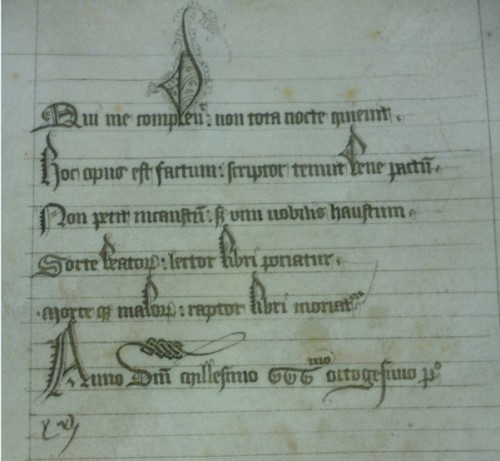 Qui me compleuͭ : non tota nocte quieuit .
Hoc opus est factum : scriptor tenuit bene pactū .
Non petit incaustū : sꝫ vini nobilis haustum .
Sorte beatoꝝ : lector libri potiatur .
Morte qꝫ maloꝝ : raptor libri moriatᷣ
Anno Dn̄i Millesimo CCCᵐᵒ octogesimo pᵒ